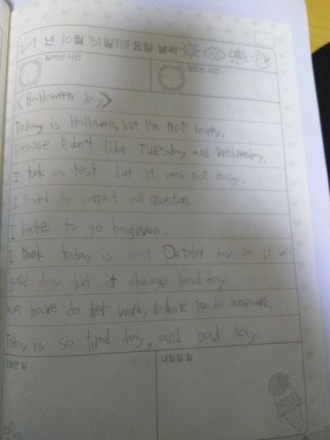 년 10월 31일 TUE요일 날씨
일어난 시간 잠자는 시간
<Halloween day>
Today is Halloween, but I'm not happy.
I didn't like Tuesday and Wednesday.
I took a test but it was not easy.
I tried to correct all question.
I hate to go hagwon.
I think today is last October day so it
good day but it change bad day.
have do hot work, I hate to do homework,
Today is so tired day, and bad day.
내일 할 일